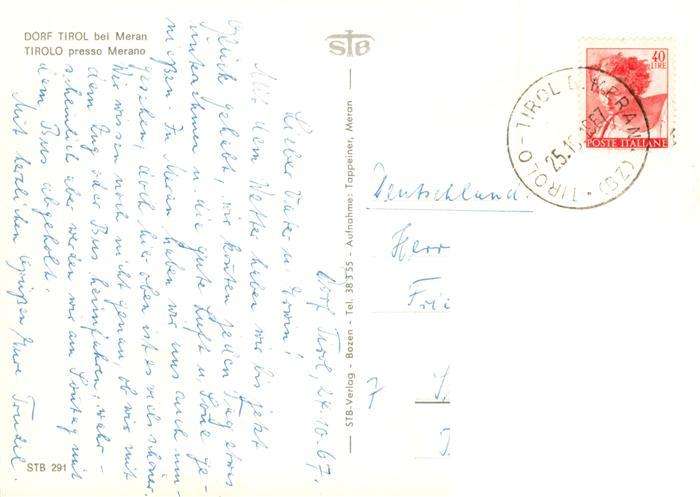 DORF TIROL bei Meran
TIROLO presso Merano
Dorf Tirol, 24.10.67.
Lieber Vater u. Erwin!
Mit dem Wetter haben wir bis jetzt
Glück gehabt, wir konnten jeden Tag etwas
unternehmen u. die gute Luft u. Sonne ge-
nießen. In Meran haben wir uns auch um-
gesehen, doch hier oben ist es viel schöner.
Wir wissen noch nicht genau, ob wir mit
dem Zug oder Bus heimfahren, wahr-
scheinlich aber werden wir am Sonntag mit
dem Bus abgeholt.
Mit herzlichen Grüßen Eure Trudel.
STB 291
STB
STB-Verlag - Bozen - Tel. 38 3 55 - Aufnahme: Tappeiner, Meran
40
LIRE
POSTE ITALIANE
TIROLO - TIROL B. MERAN (BZ)
25.10.1967
Deutschland.
Herr
Frie
7